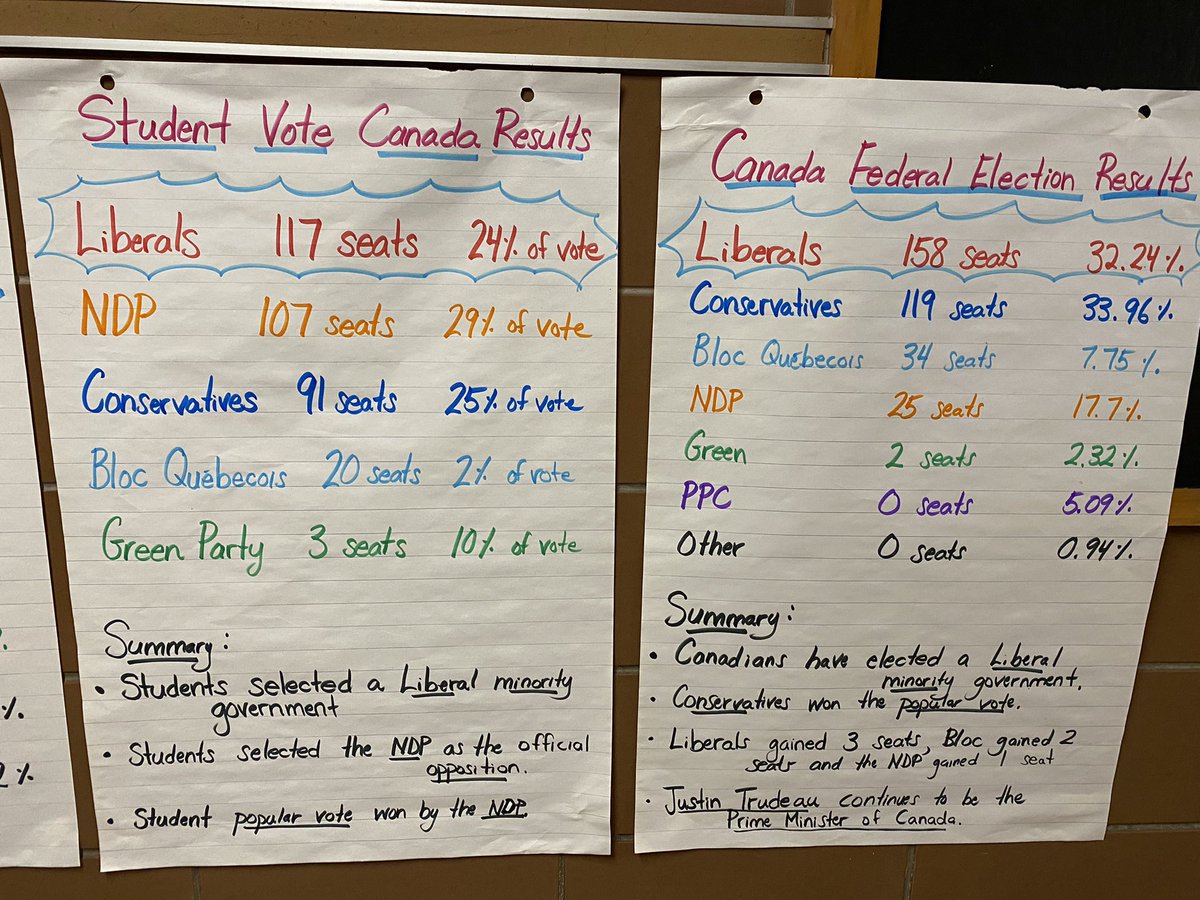 Student Vote Canada Results
Liberals 117 seats 24% of vote
NDP 107 seats 29% of vote
Conservatives 91 seats 25% of vote
Bloc Québecois 20 seats 2% of vote
Green Party 3 seats 10% of vote
Summary:
• Students selected a Liberal minority
government
• Students selected the NDP as the official
opposition.
• Student popular vote won by the NDP.
Canada Federal Election Results
Liberals 158 seats 32.24%
Conservatives 119 seats 33.96%
Bloc Québecois 34 seats 7.75%
NDP 25 seats 17.7%
Green 2 seats 2.32%
PPC 0 seats 5.09%
Other 0 seats 0.94%
Summary:
• Canadians have elected a Liberal
minority government.
• Conservatives won the popular vote.
• Liberals gained 3 seats, Bloc gained 2
seats and the NDP gained 1 seat
• Justin Trudeau continues to be the
Prime Minister of Canada.